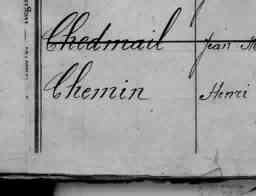 Chedmail Jean M
Chemin Henri